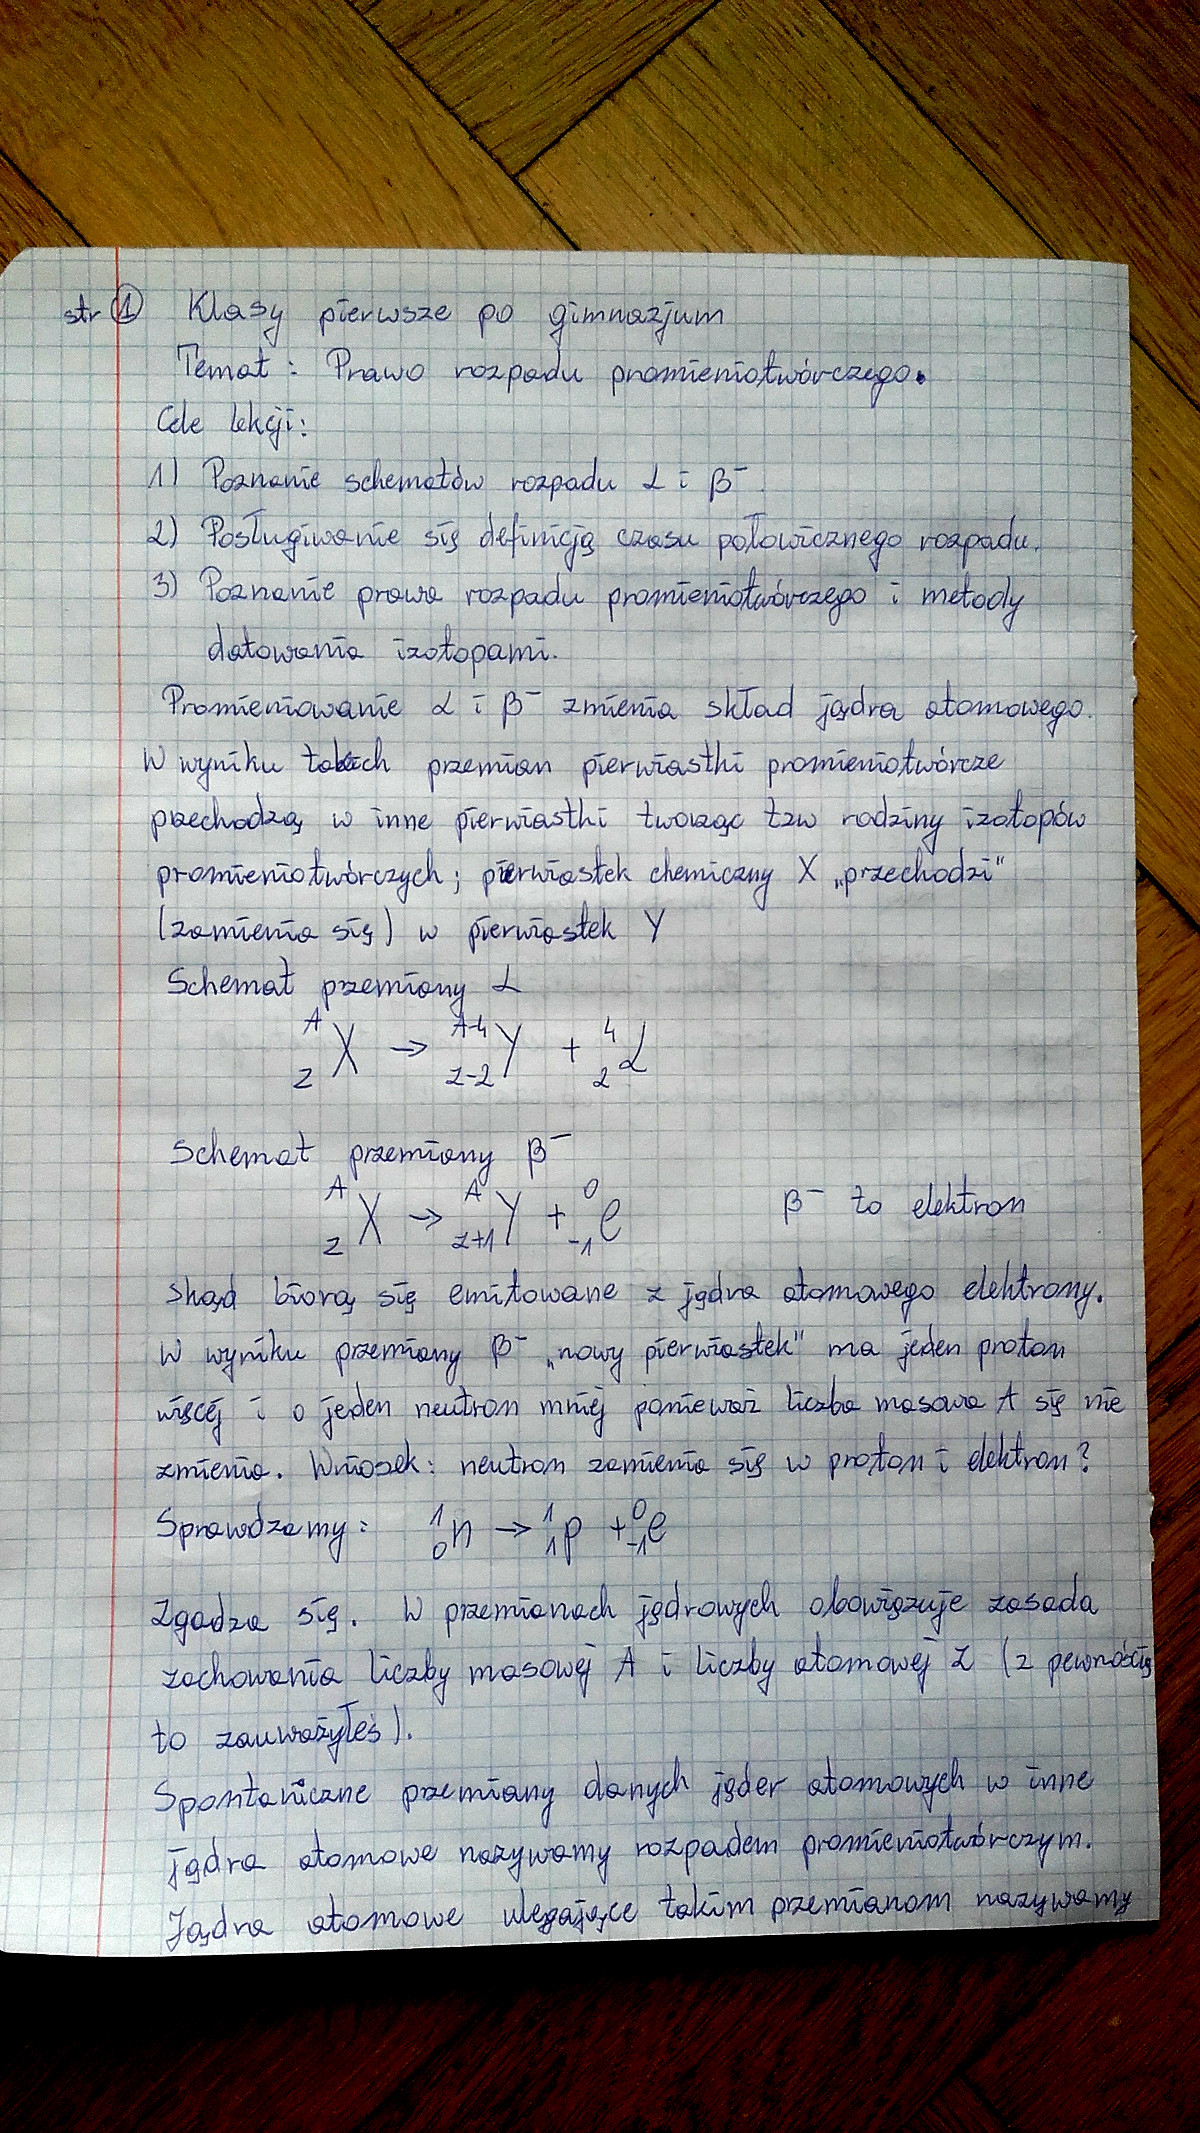 str 1 Klasy pierwsze po gimnazjum
Temat: Prawo rozpadu promieniotwórczego.
Cele lekcji:
1) Poznanie schematów rozpadu α i β⁻.
2) Posługiwanie się definicją czasu połowicznego rozpadu.
3) Poznanie prawa rozpadu promieniotwórczego i metody
datowania izotopami.
Promieniowanie α i β⁻ zmienia skład jądra atomowego.
W wyniku takich przemian pierwiastki promieniotwórcze
przechodzą w inne pierwiastki tworząc tzw rodziny izotopów
promieniotwórczych; pierwiastek chemiczny X „przechodzi"
(zamienia się) w pierwiastek Y
Schemat przemiany α
ᴬ_Z X → ᴬ⁻⁴_Z-2 Y + ⁴₂α
Schemat przemiany β⁻
ᴬ_Z X → ᴬ_Z+1 Y + ⁰₋₁e β⁻ to elektron
Skąd biorą się emitowane z jądra atomowego elektrony.
W wyniku przemiany β⁻ „nowy pierwiastek" ma jeden proton
więcej i o jeden neutron mniej ponieważ liczba masowa A się nie
zmienia. Wniosek: neutron zamienia się w proton i elektron?
Sprawdzamy: ¹₀n → ¹₁p + ⁰₋₁e
Zgadza się. W przemianach jądrowych obowiązuje zasada
zachowania liczby masowej A i liczby atomowej Z (z pewnością
to zauważyłeś).
Spontaniczne przemiany danych jąder atomowych w inne
jądra atomowe nazywamy rozpadem promieniotwórczym.
Jądra atomowe ulegające takim przemianom nazywamy